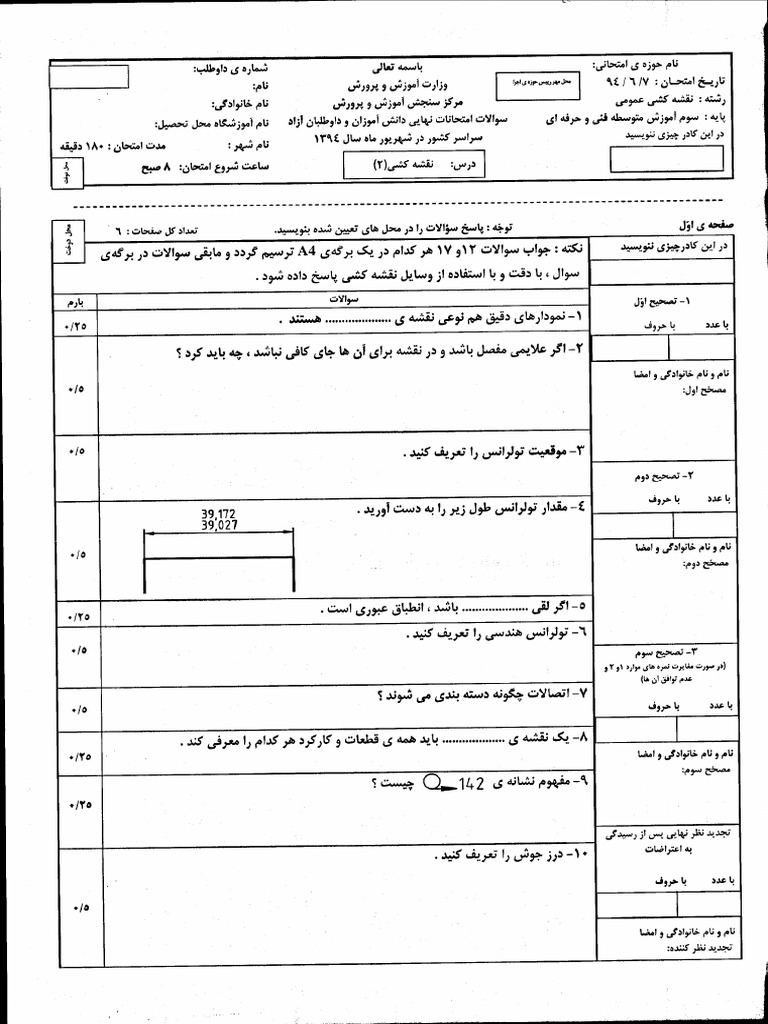 نام حوزه ی امتحانی:
باسمه تعالی
شماره ی داوطلب:
تاریخ امتحان : ۹۴/۶/۷
محل مهر رییس حوزه ی اجرا
وزارت آموزش و پرورش
نام:
رشته : نقشه کشی عمومی
مرکز سنجش آموزش و پرورش
نام خانوادگی:
پایه : سوم آموزش متوسطه فنی و حرفه ای
سوالات امتحانات نهایی دانش آموزان و داوطلبان آزاد
نام آموزشگاه محل تحصیل:
در این کادر چیزی ننویسید
سراسر کشور در شهریور ماه سال ۱۳۹۴
نام شهر :
مدت امتحان : ۱۸۰ دقیقه
درس: نقشه کشی(۲)
ساعت شروع امتحان: ۸ صبح
محل دوخت
صفحه ی اوّل
توجّه : پاسخ سؤالات را در محل های تعیین شده بنویسید.
تعداد کل صفحات : ۶
محل دوخت
در این کادرچیزی ننویسید
نکته : جواب سوالات ۱۲و ۱۷ هر کدام در یک برگه‌ی A4 ترسیم گردد و مابقی سوالات در برگه‌ی
سوال ، با دقت و با استفاده از وسایل نقشه کشی پاسخ داده شود .
سوالات
بارم
۱- نمودارهای دقیق هم نوعی نقشه ی .................... هستند .
۰/۲۵
۲- اگر علایمی مفصل باشد و در نقشه برای آن ها جای کافی نباشد ، چه باید کرد ؟
۰/۵
۳- موقعیت تولرانس را تعریف کنید .
۰/۵
۴- مقدار تولرانس طول زیر را به دست آورید .
39,172
39,027
۰/۵
۵- اگر لقی .................... باشد ، انطباق عبوری است .
۰/۲۵
۶- تولرانس هندسی را تعریف کنید .
۰/۵
۷- اتصالات چگونه دسته بندی می شوند ؟
۰/۵
۸- یک نقشه ی ................... باید همه ی قطعات و کارکرد هر کدام را معرفی کند .
۰/۲۵
۹- مفهوم نشانه ی 142 چیست ؟
۰/۲۵
۱۰- درز جوش را تعریف کنید .
۰/۵
۱- تصحیح اوّل
با عدد
با حروف
نام و نام خانوادگی و امضا
مصحح اول:
۲- تصحیح دوم
با عدد
با حروف
نام و نام خانوادگی و امضا
مصحح دوم:
۳- تصحیح سوم
(در صورت مغایرت نمره های موارد ۱و ۲ و
عدم توافق آن ها)
با عدد
با حروف
نام و نام خانوادگی و امضا
مصحح سوم:
تجدید نظر نهایی پس از رسیدگی
به اعتراضات
با عدد
با حروف
نام و نام خانوادگی و امضا
تجدید نظر کننده: